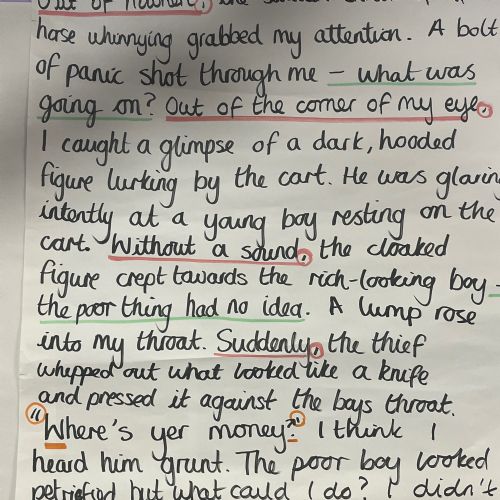 Out of nowhere, the
horse whinnying grabbed my attention. A bolt
of panic shot through me – what was
going on? Out of the corner of my eye,
I caught a glimpse of a dark, hooded
figure lurking by the cart. He was glaring
intently at a young boy resting on the
cart. Without a sound, the cloaked
figure crept towards the rich-looking boy –
the poor thing had no idea. A lump rose
into my throat. Suddenly, the thief
whipped out what looked like a knife
and pressed it against the boys throat.
"Where's yer money?" I think I
heard him grunt. The poor boy looked
petrified but what could I do? I didn't